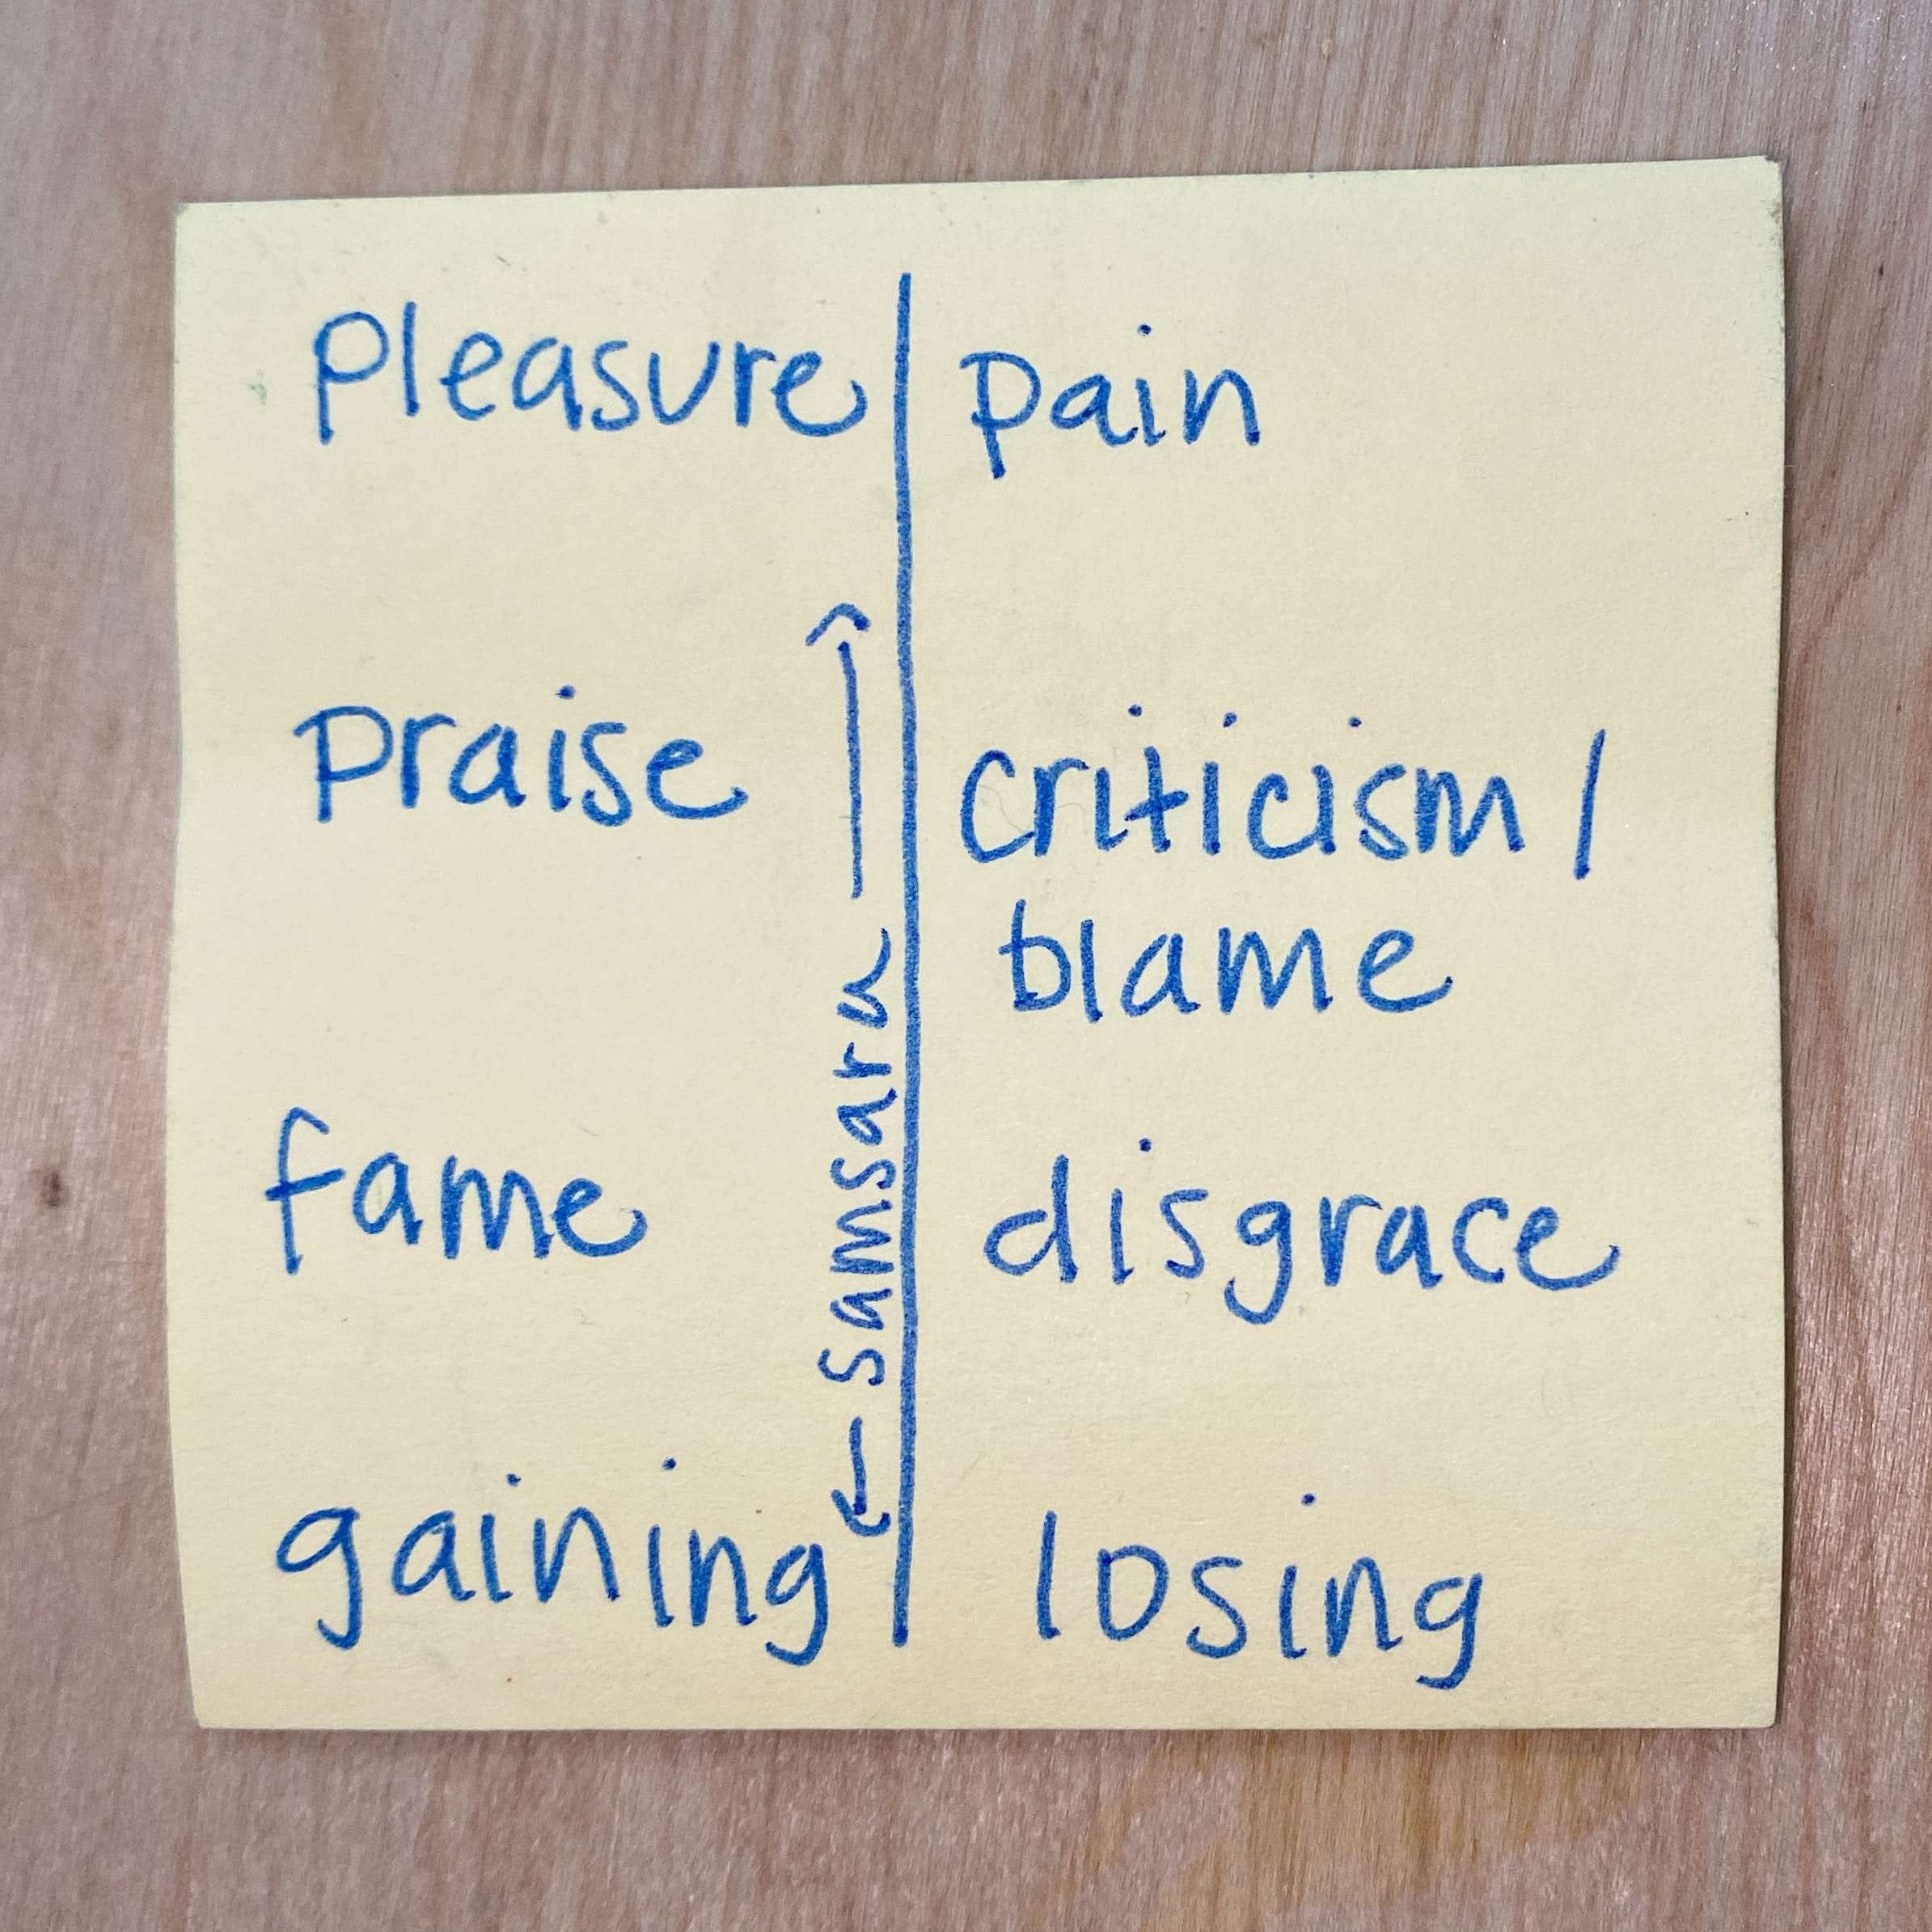 pleasure | pain
praise
criticism /
blame
samsara
fame
disgrace
gaining
losing